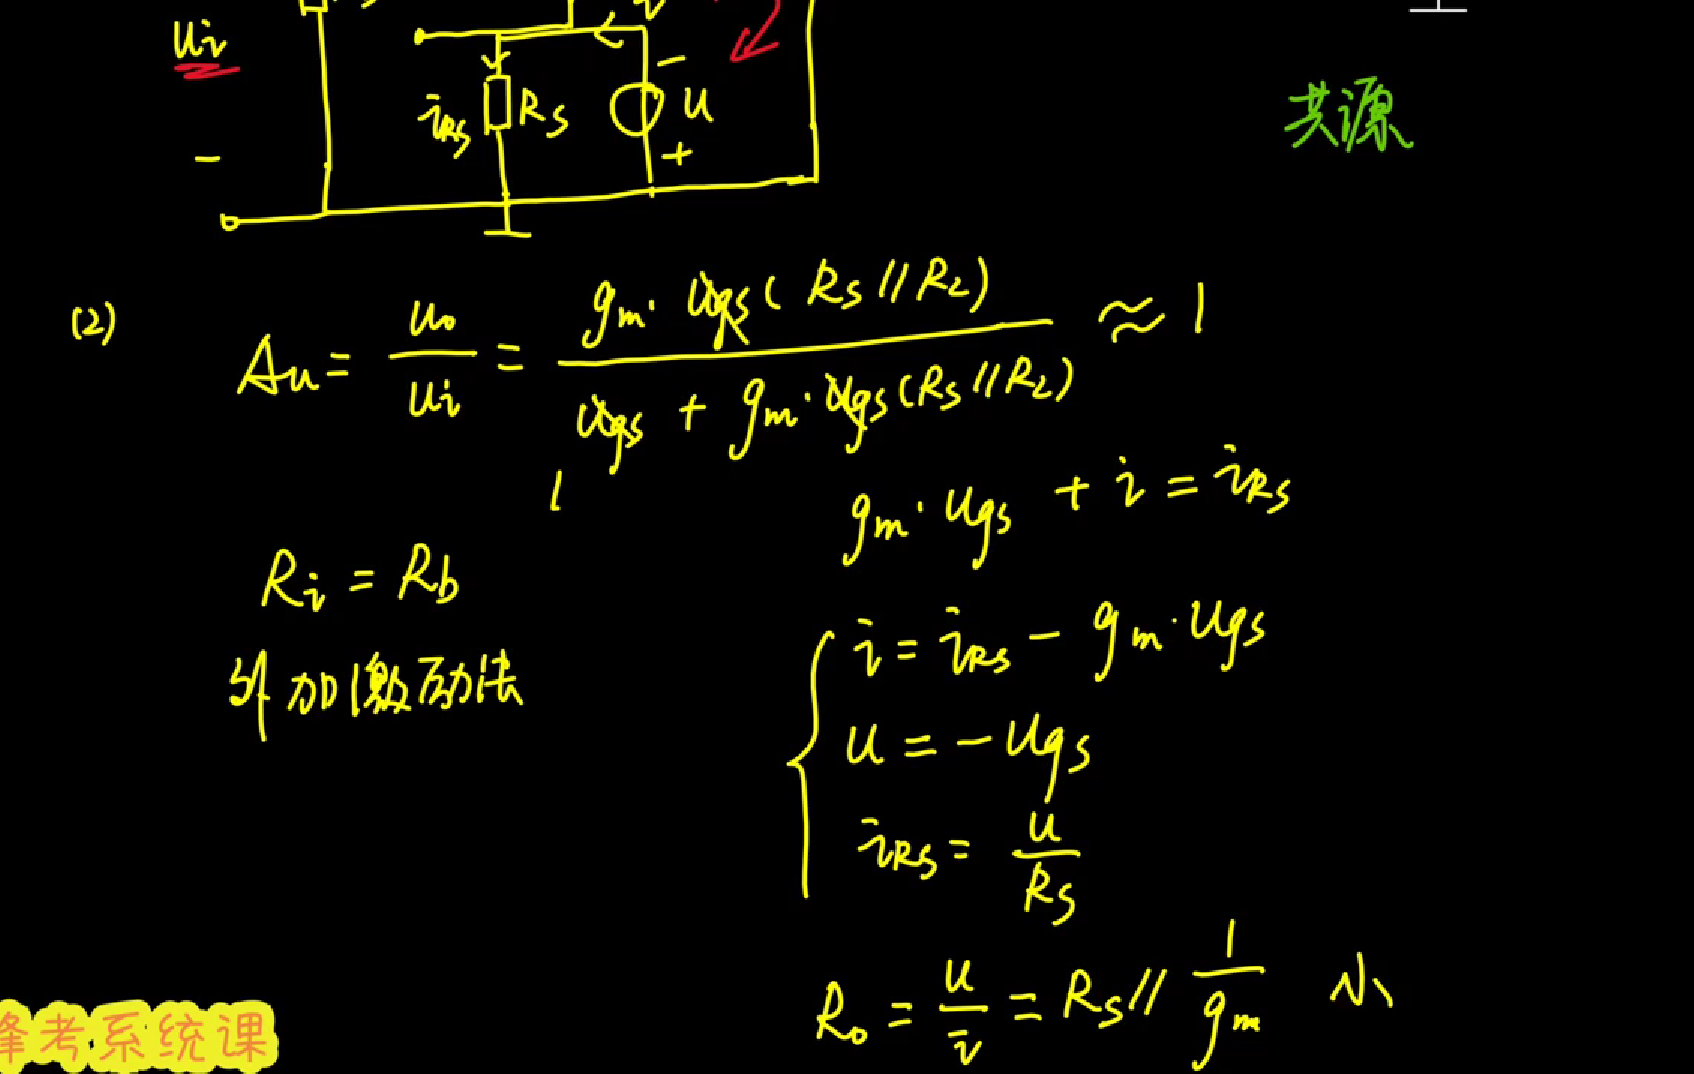 Ui
-
i
-
iRs Rs U
+
共源
(2)
Au = uo/ui = gm·ugs(Rs//RL) / ugs + gm·ugs(Rs//RL) ≈ 1
1
gm·ugs + i = iRs
Ri = Rb
外加激励法
i = iRs - gm·ugs
u = -ugs
iRs = u/Rs
Ro = u/i = Rs // 1/gm 小
考系统课